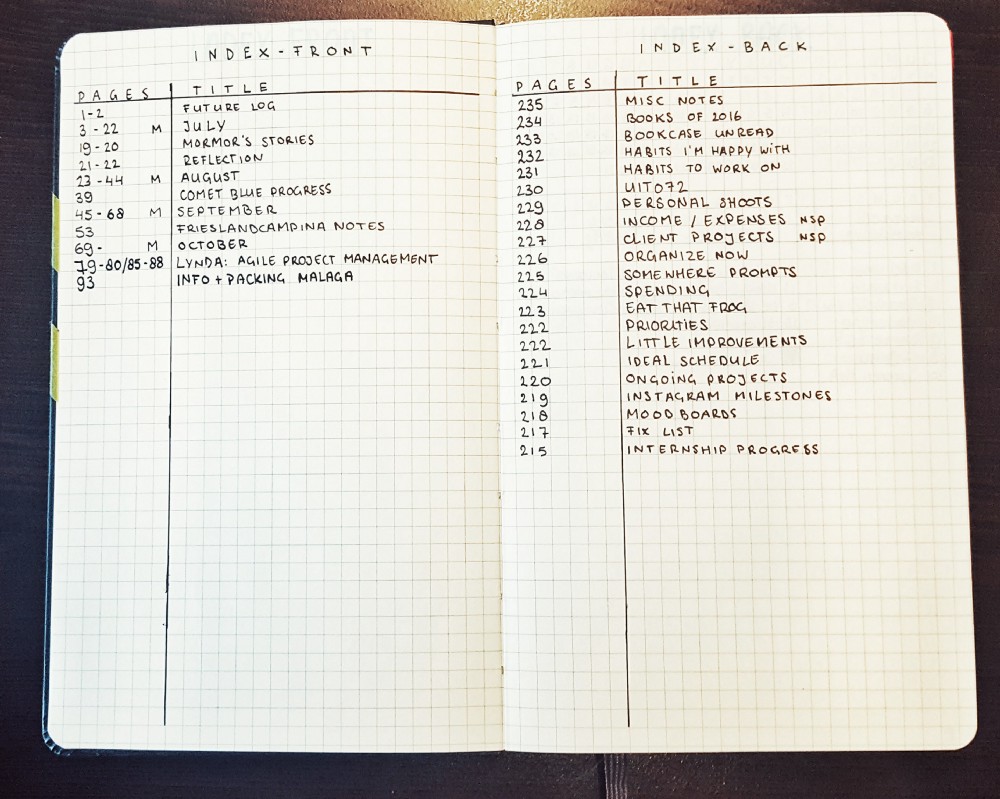 INDEX-FRONT
PAGES TITLE
1-2 FUTURE LOG
3-22 M JULY
19-20 MORMOR'S STORIES
21-22 REFLECTION
23-44 M AUGUST
39 COMET BLUE PROGRESS
45-68 M SEPTEMBER
53 FRIESLANDCAMPINA NOTES
69- M OCTOBER
79-80/85-88 LYNDA: AGILE PROJECT MANAGEMENT
93 INFO + PACKING MALAGA
INDEX-BACK
PAGES TITLE
235 MISC NOTES
234 BOOKS OF 2016
233 BOOKCASE UNREAD
232 HABITS I'M HAPPY WITH
231 HABITS TO WORK ON
230 UITO72
229 PERSONAL SHOOTS
228 INCOME / EXPENSES NSP
227 CLIENT PROJECTS NSP
226 ORGANIZE NOW
225 SOMEWHERE PROMPTS
224 SPENDING
223 EAT THAT FROG
222 PRIORITIES
222 LITTLE IMPROVEMENTS
221 IDEAL SCHEDULE
220 ONGOING PROJECTS
219 INSTAGRAM MILESTONES
218 MOOD BOARDS
217 FIX LIST
215 INTERNSHIP PROGRESS